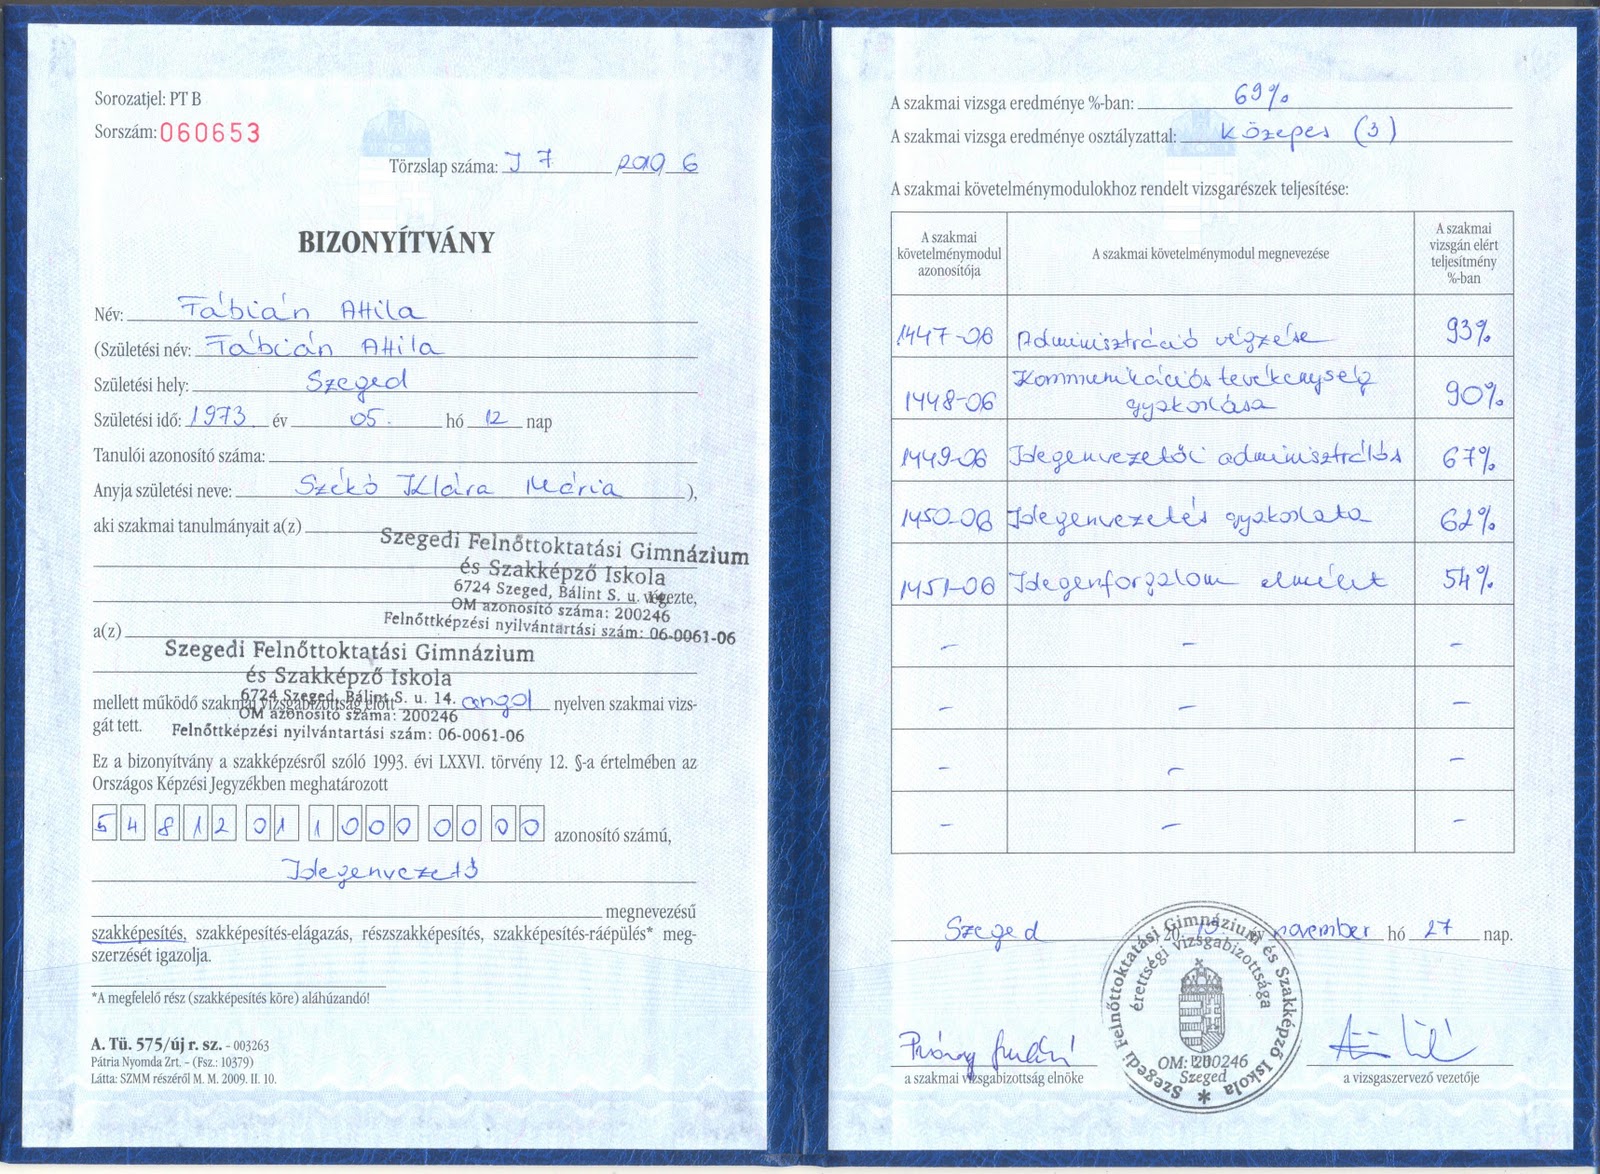 Sorozatjel: PT B
Sorszám: 060653
Törzslap száma: I 7
BIZONYÍTVÁNY
Név: Fábián Attila
(Születési név: Fábián Attila
Születési hely: Szeged
Születési idő: 1973 év 05. hó 12 nap
Tanulói azonosító száma:
Anyja születési neve: Székó Klára Mária ),
aki szakmai tanulmányait a(z)
Szegedi Felnőttoktatási Gimnázium
és Szakképző Iskola
6724 Szeged, Bálint S. u. 14.
végezte,
OM azonosító száma: 200246
Felnőttképzési nyilvántartási szám: 06-0061-06
a(z)
Szegedi Felnőttoktatási Gimnázium
és Szakképző Iskola
6724 Szeged, Bálint S. u. 14.
mellett működő szakmai vizsgabizottság előtt angol nyelven szakmai vizs-
OM azonosító száma: 200246
gát tett.
Felnőttképzési nyilvántartási szám: 06-0061-06
Ez a bizonyítvány a szakképzésről szóló 1993. évi LXXVI. törvény 12. §-a értelmében az
Országos Képzési Jegyzékben meghatározott
54 812 01 1000 00 00 azonosító számú,
Idegenvezető
megnevezésű
szakképesítés, szakképesítés-elágazás, részszakképesítés, szakképesítés-ráépülés* meg-
szerzését igazolja.
*A megfelelő rész (szakképesítés köre) aláhúzandó!
A. Tü. 575/új r. sz. - 003263
Pátria Nyomda Zrt. – (Fsz.: 10379)
Látta: SZMM részéről M. M. 2009. II. 10.
A szakmai vizsga eredménye %-ban: 69%
A szakmai vizsga eredménye osztályzattal: Közepes (3)
A szakmai követelménymodulokhoz rendelt vizsgarészek teljesítése:
A szakmai követelménymodul azonosítója
A szakmai követelménymodul megnevezése
A szakmai vizsgán elért teljesítmény %-ban
1447-06 Adminisztráció végzése 93%
1448-06 Kommunikációs tevékenység gyakorlása 90%
1449-06 Idegenvezetői adminisztrálás 67%
1450-06 Idegenvezetés gyakorlata 62%
1451-06 Idegenforgalom elmélet 54%
– – –
– – –
– – –
– – –
Szeged, 20 november hó 27 nap.
Szegedi Felnőttoktatási Gimnázium és Szakképző Iskola
érettségi vizsgabizottsága
OM: 200246
Szeged
a szakmai vizsgabizottság elnöke
a vizsgaszervező vezetője